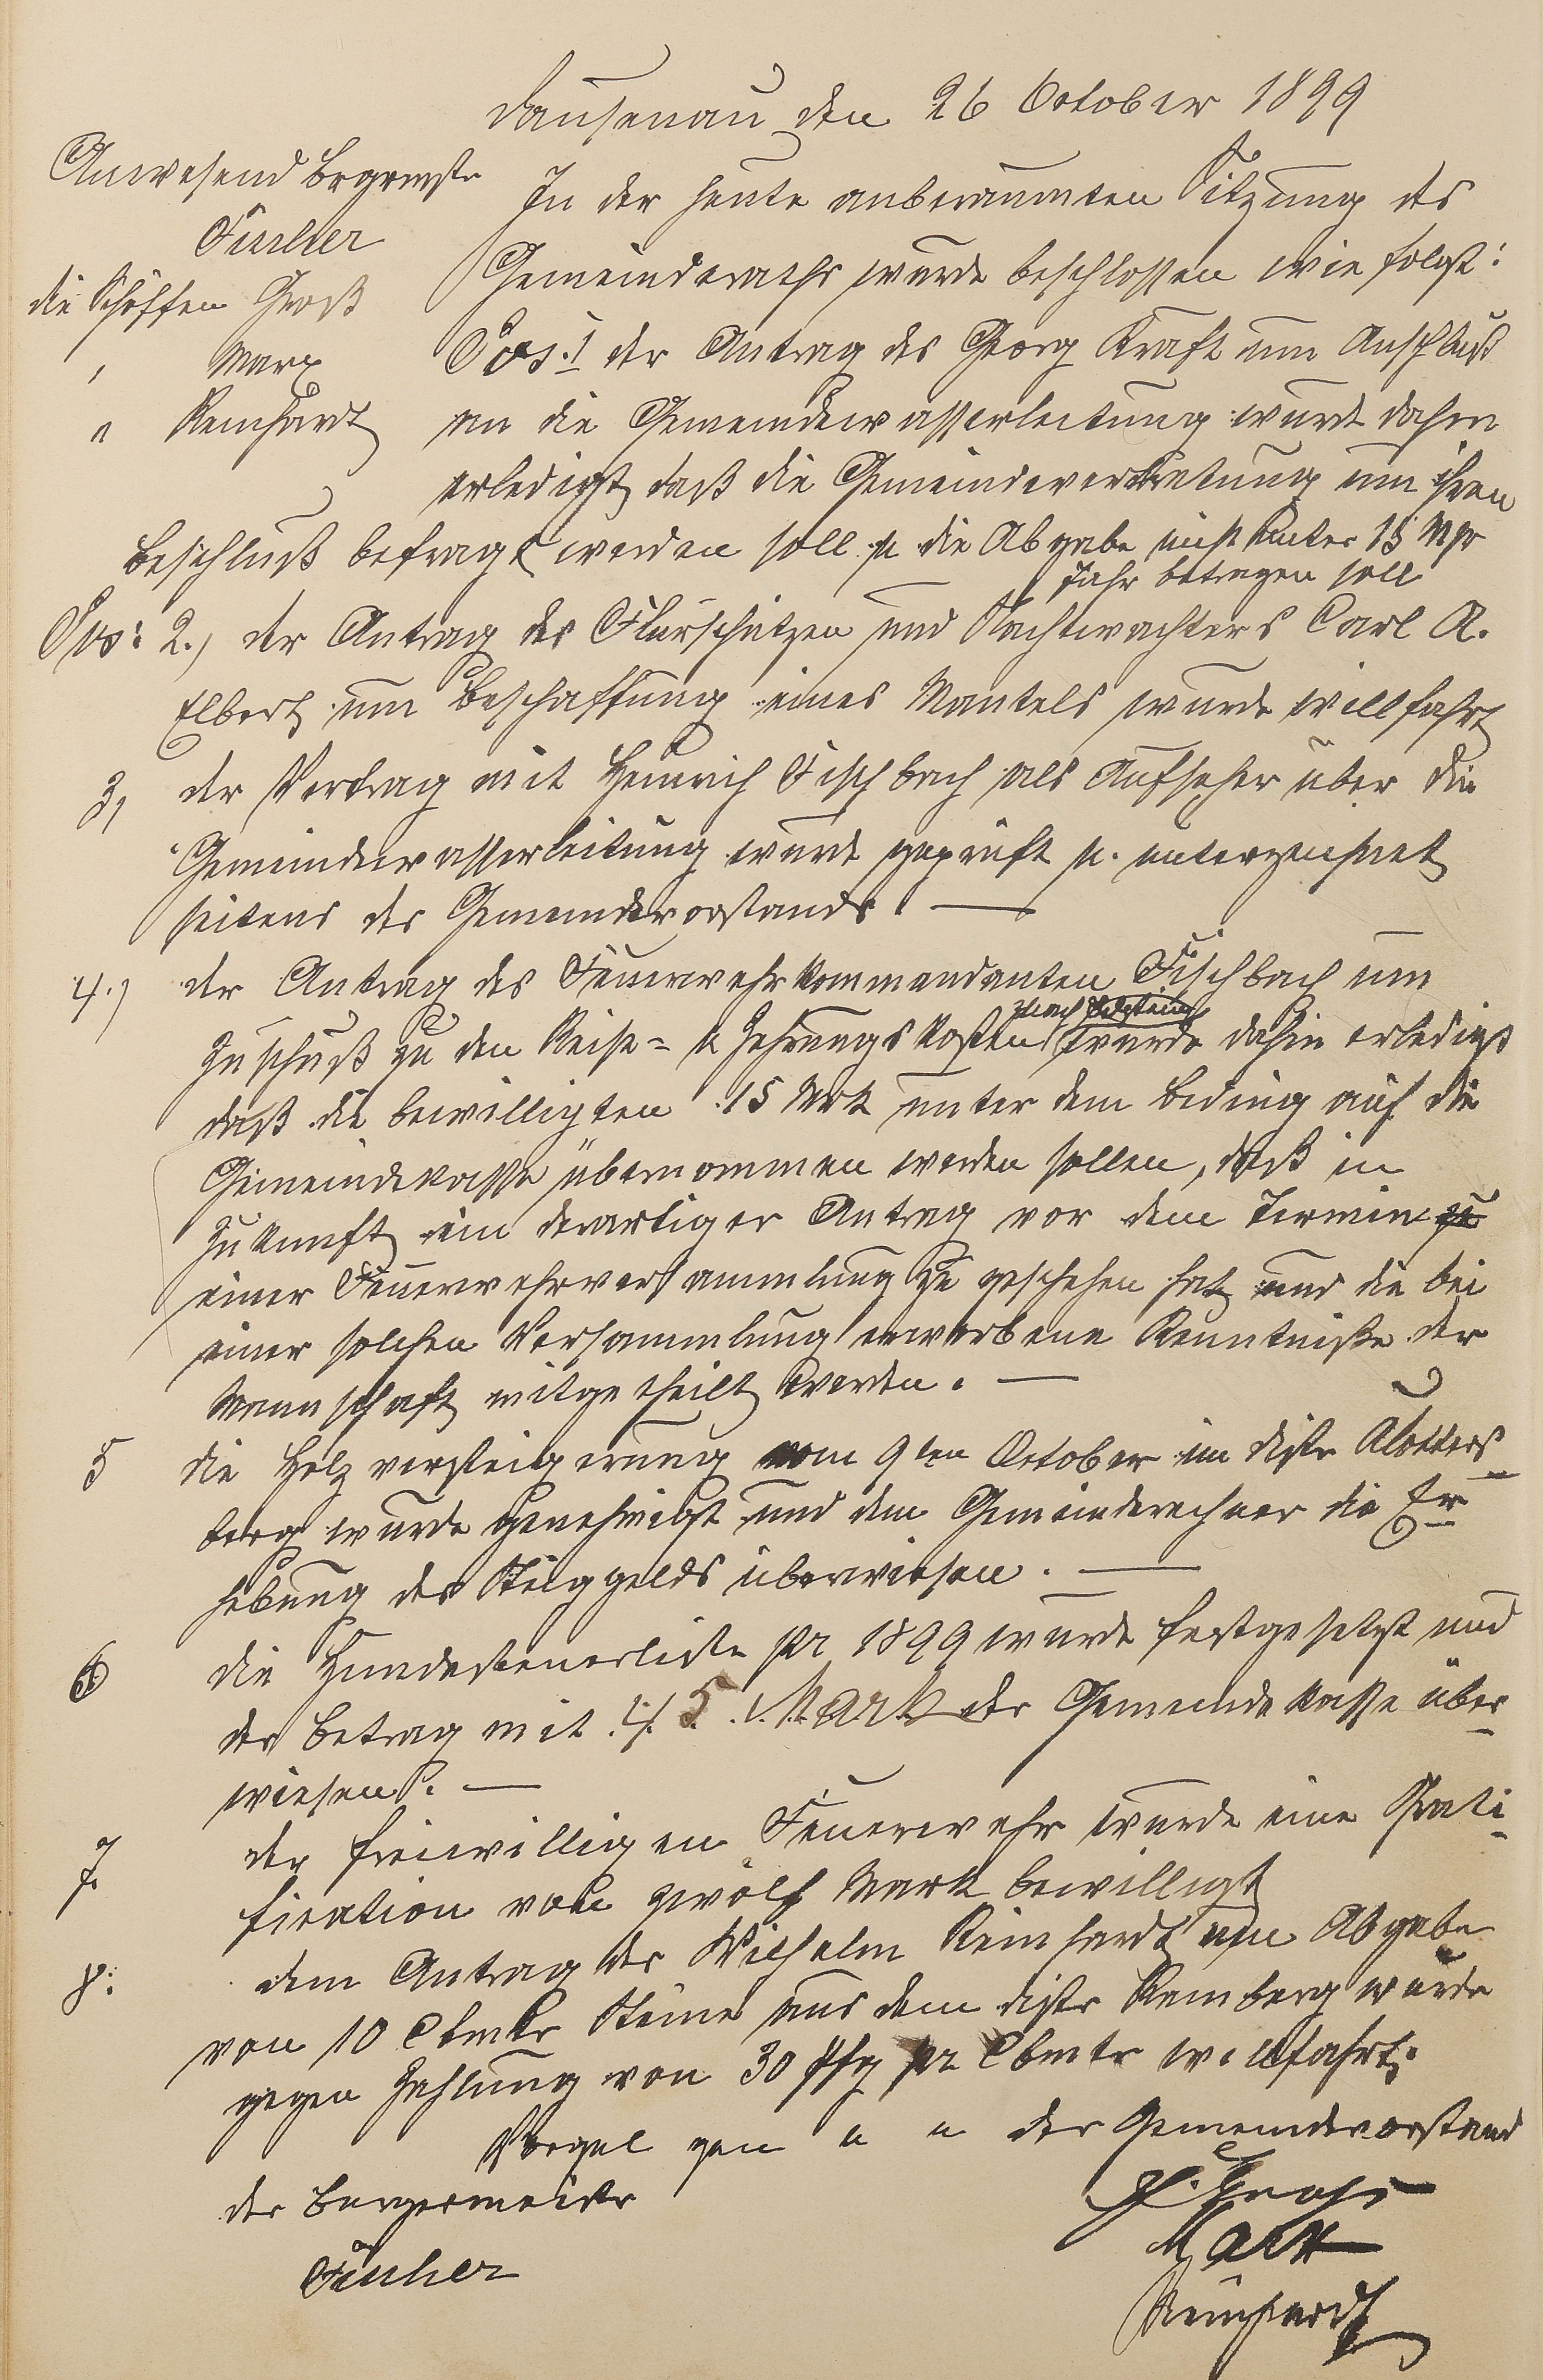 Dausenau den 26 October 1899
Anwesend Brgrmstr
Fischer
die Schöffen Groß
" Marx
" Reinhardt
In der heute anberaumten Sitzung des
Gemeinderaths wurde beschlossen wie folgt:
Pos. 1 der Antrag des Georg Kraft um Anschluß
an die Gemeindewasserleitung wurde dahin
erledigt daß die Gemeindevertretung um ihren
Beschluß befragt werden soll u die Abgabe nicht unter 15 M pr
Jahr betragen soll
Pos: 2.) der Antrag des Flurschützen und Nachtwächters Carl A.
Elbert um Beschaffung eines Mantels wurde willfahrt
3, der Vertrag mit Heinrich Fischbach als Aufseher über die
Gemeindewasserleitung wurde geprüft u. unterzeichnet
seitens des Gemeindevorstands. —
4.) der Antrag des Feuerwehrkommandanten Fischbach um
nach
Zuschuß zu den Reise- u Zehrungskosten wurde dahin erledigt
daß die bewilligten 15 Mrk unter dem Beding auf die
Gemeindekasse übernommen werden sollen, daß in
Zukunft ein derartiger Antrag vor dem Termin zu
einer Feuerwehrversammlung zu geschehen hat und die bei
einer solchen Versammlung erworbene Kenntniße der
Mannschaft mitgetheilt werden. —
5 die Holzversteigerung vom 9ten October im distr
berg wurde genehmigt und dem Gemeinderechner die Er
hebung des Steiggelds überwiesen. —
6 die Hundesteuerliste pr 1899 wurde festgesetzt und
der Betrag mit 45 Mark der Gemeindekasse über
wiesen. —
7. der freiwilligen Feuerwehr wurde eine Grati
fication von zwölf Mark bewilligt
8: dem Antrag des Wilhelm Reinhardt um Abgabe
von 10 Cbmtr Steine aus dem distr Remberg wurde
gegen Zahlung von 30 Pfg pr Cbmtr willfahrt.
Vorgel gen u u der Gemeindevorstand
der Bürgermeister
Fischer
H. Groß
Marx
Reinhardt